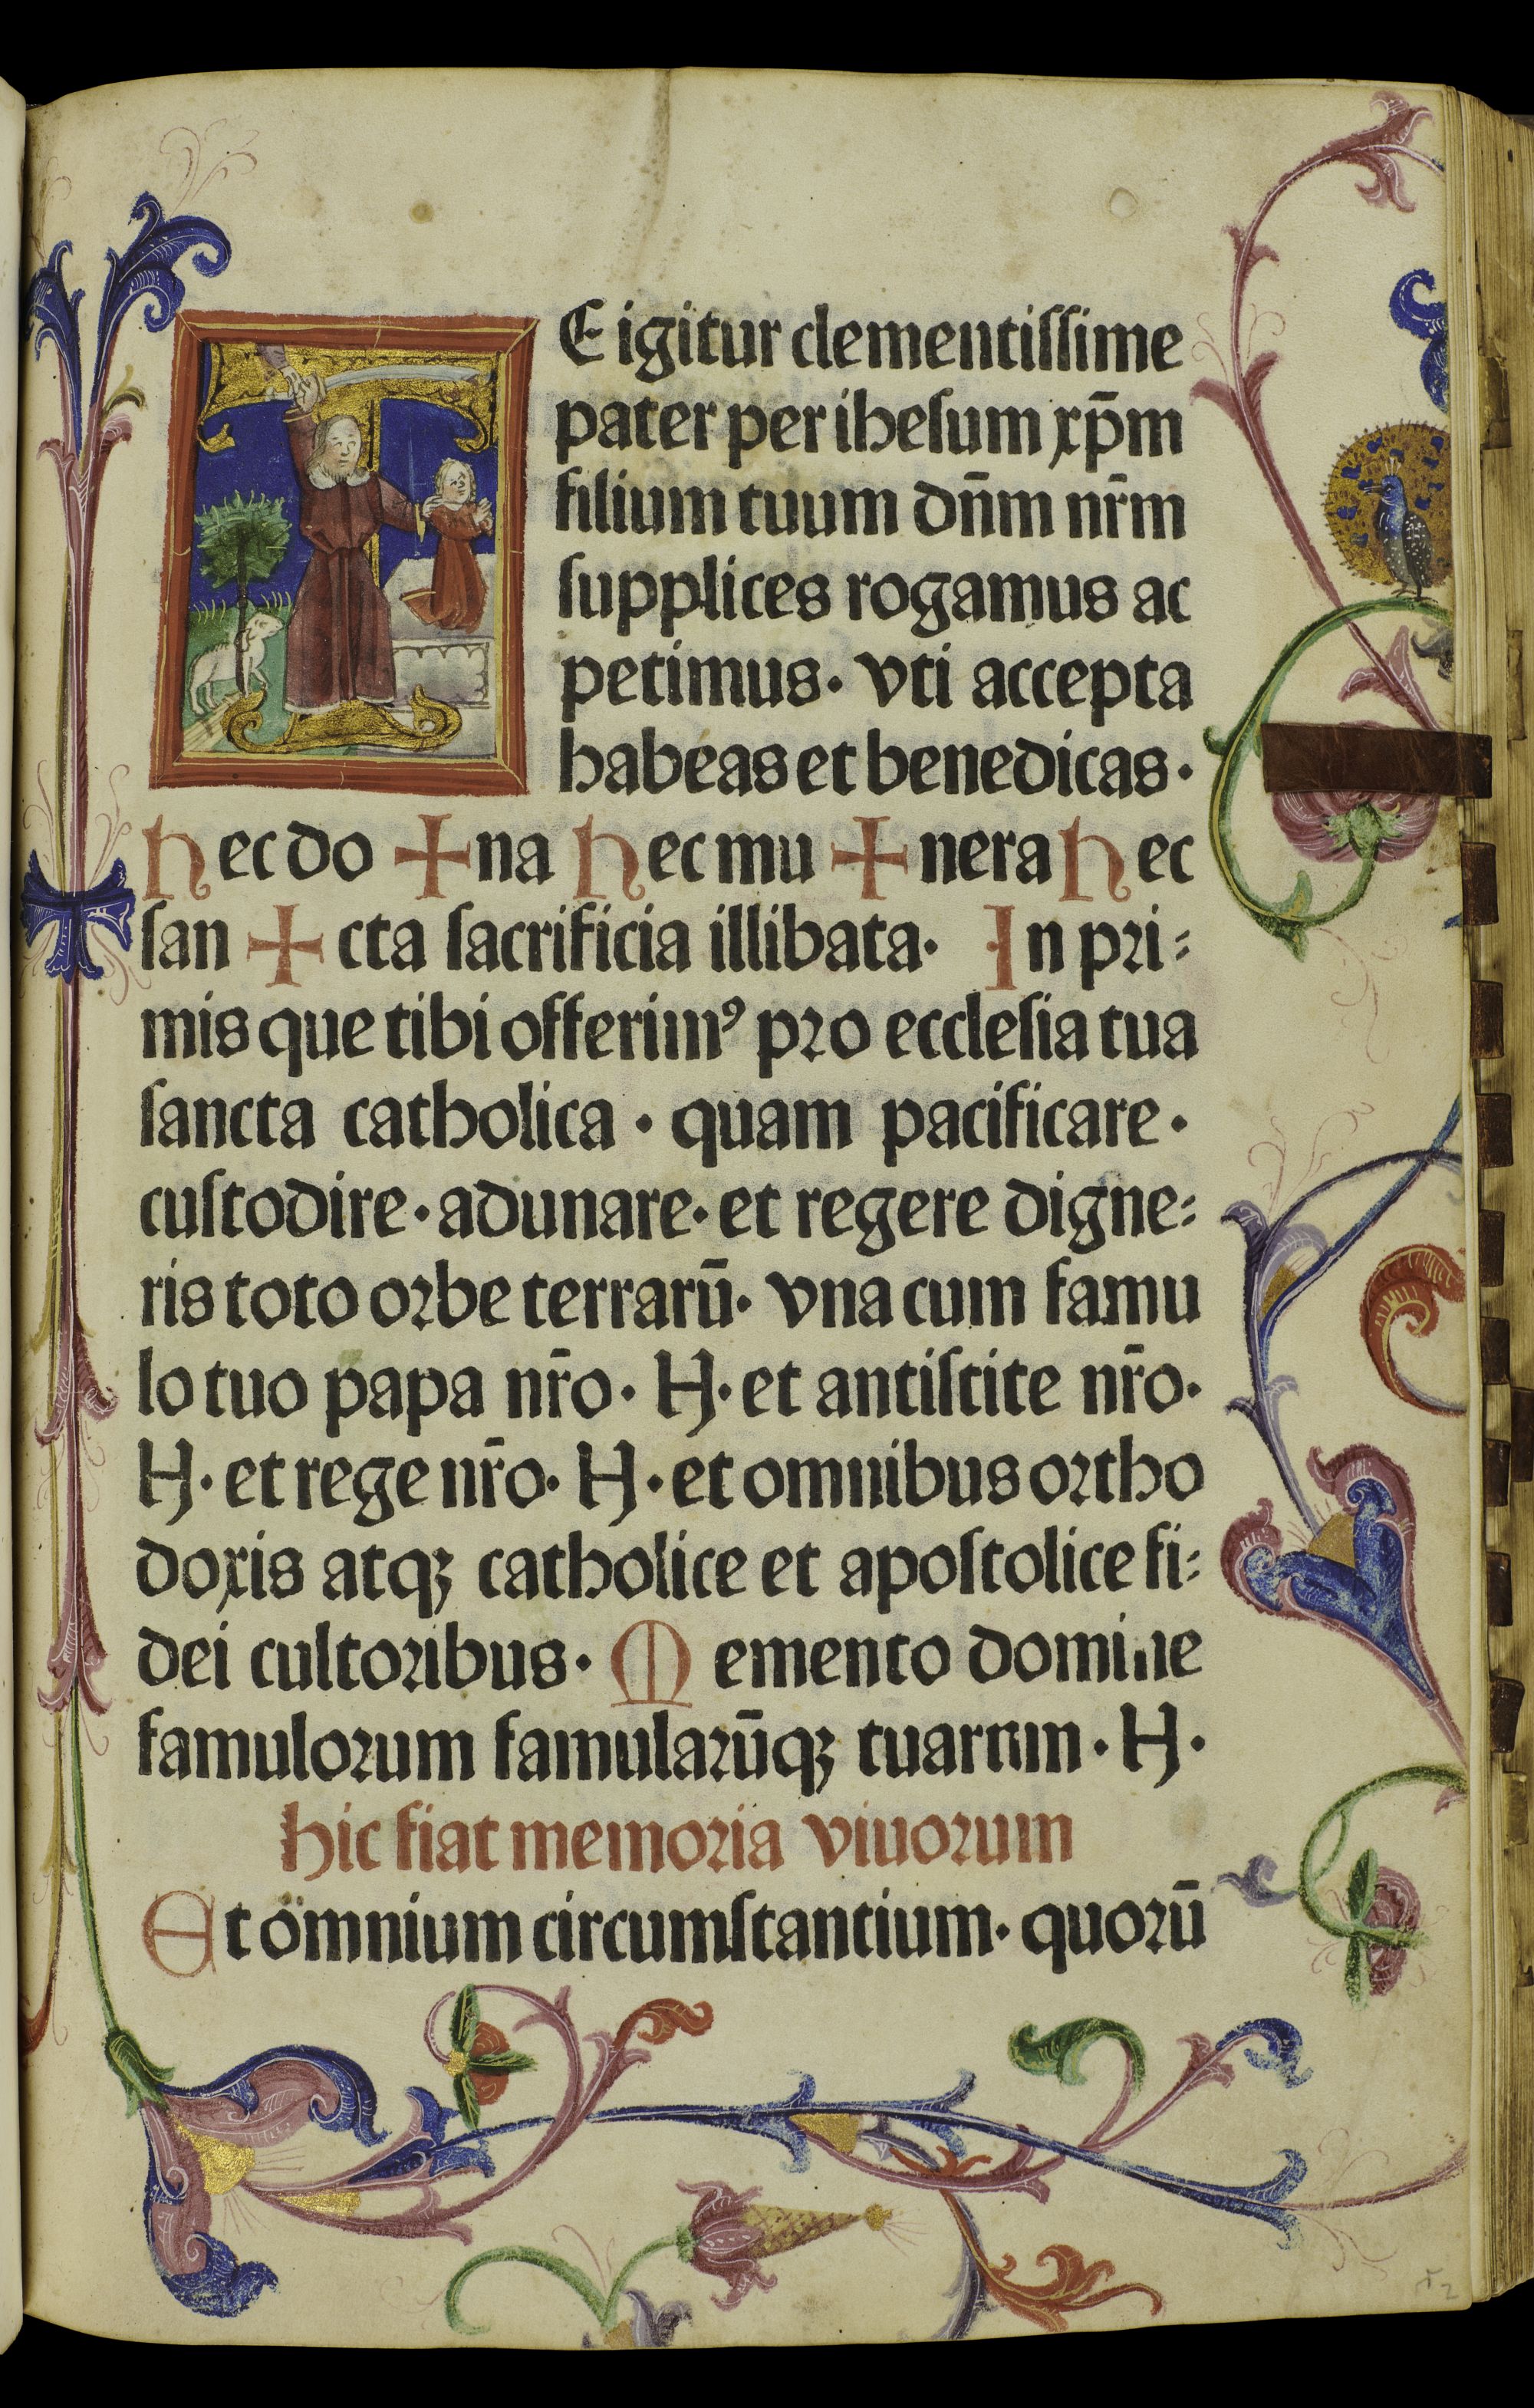 TE igitur clementiſſime
pater per iheſum xp̄m
filium tuum dn̄m nr̄m
ſupplices rogamus ac
petimus· vti accepta
habeas et benedicas·
hec do ✚ na hec mu ✚ nera hec
ſan ✚ cta ſacrificia illibata· In pri⸗
mis que tibi offerimꝰ pro eccleſia tua
ſancta catholica · quam pacificare·
cuſtodire· adunare· et regere digne⸗
ris toto orbe terrarū· vna cum famu
lo tuo papa nr̄o· N· et antiſtite nr̄o·
N· et rege nr̄o· N· et omnibus ortho
doxis atqꝫ catholice et apoſtolice fi⸗
dei cultoribus· Memento domine
famulorum famularūqꝫ tuarum· N·
hic fiat memoria viuorum
Et omnium circumſtantium· quorū